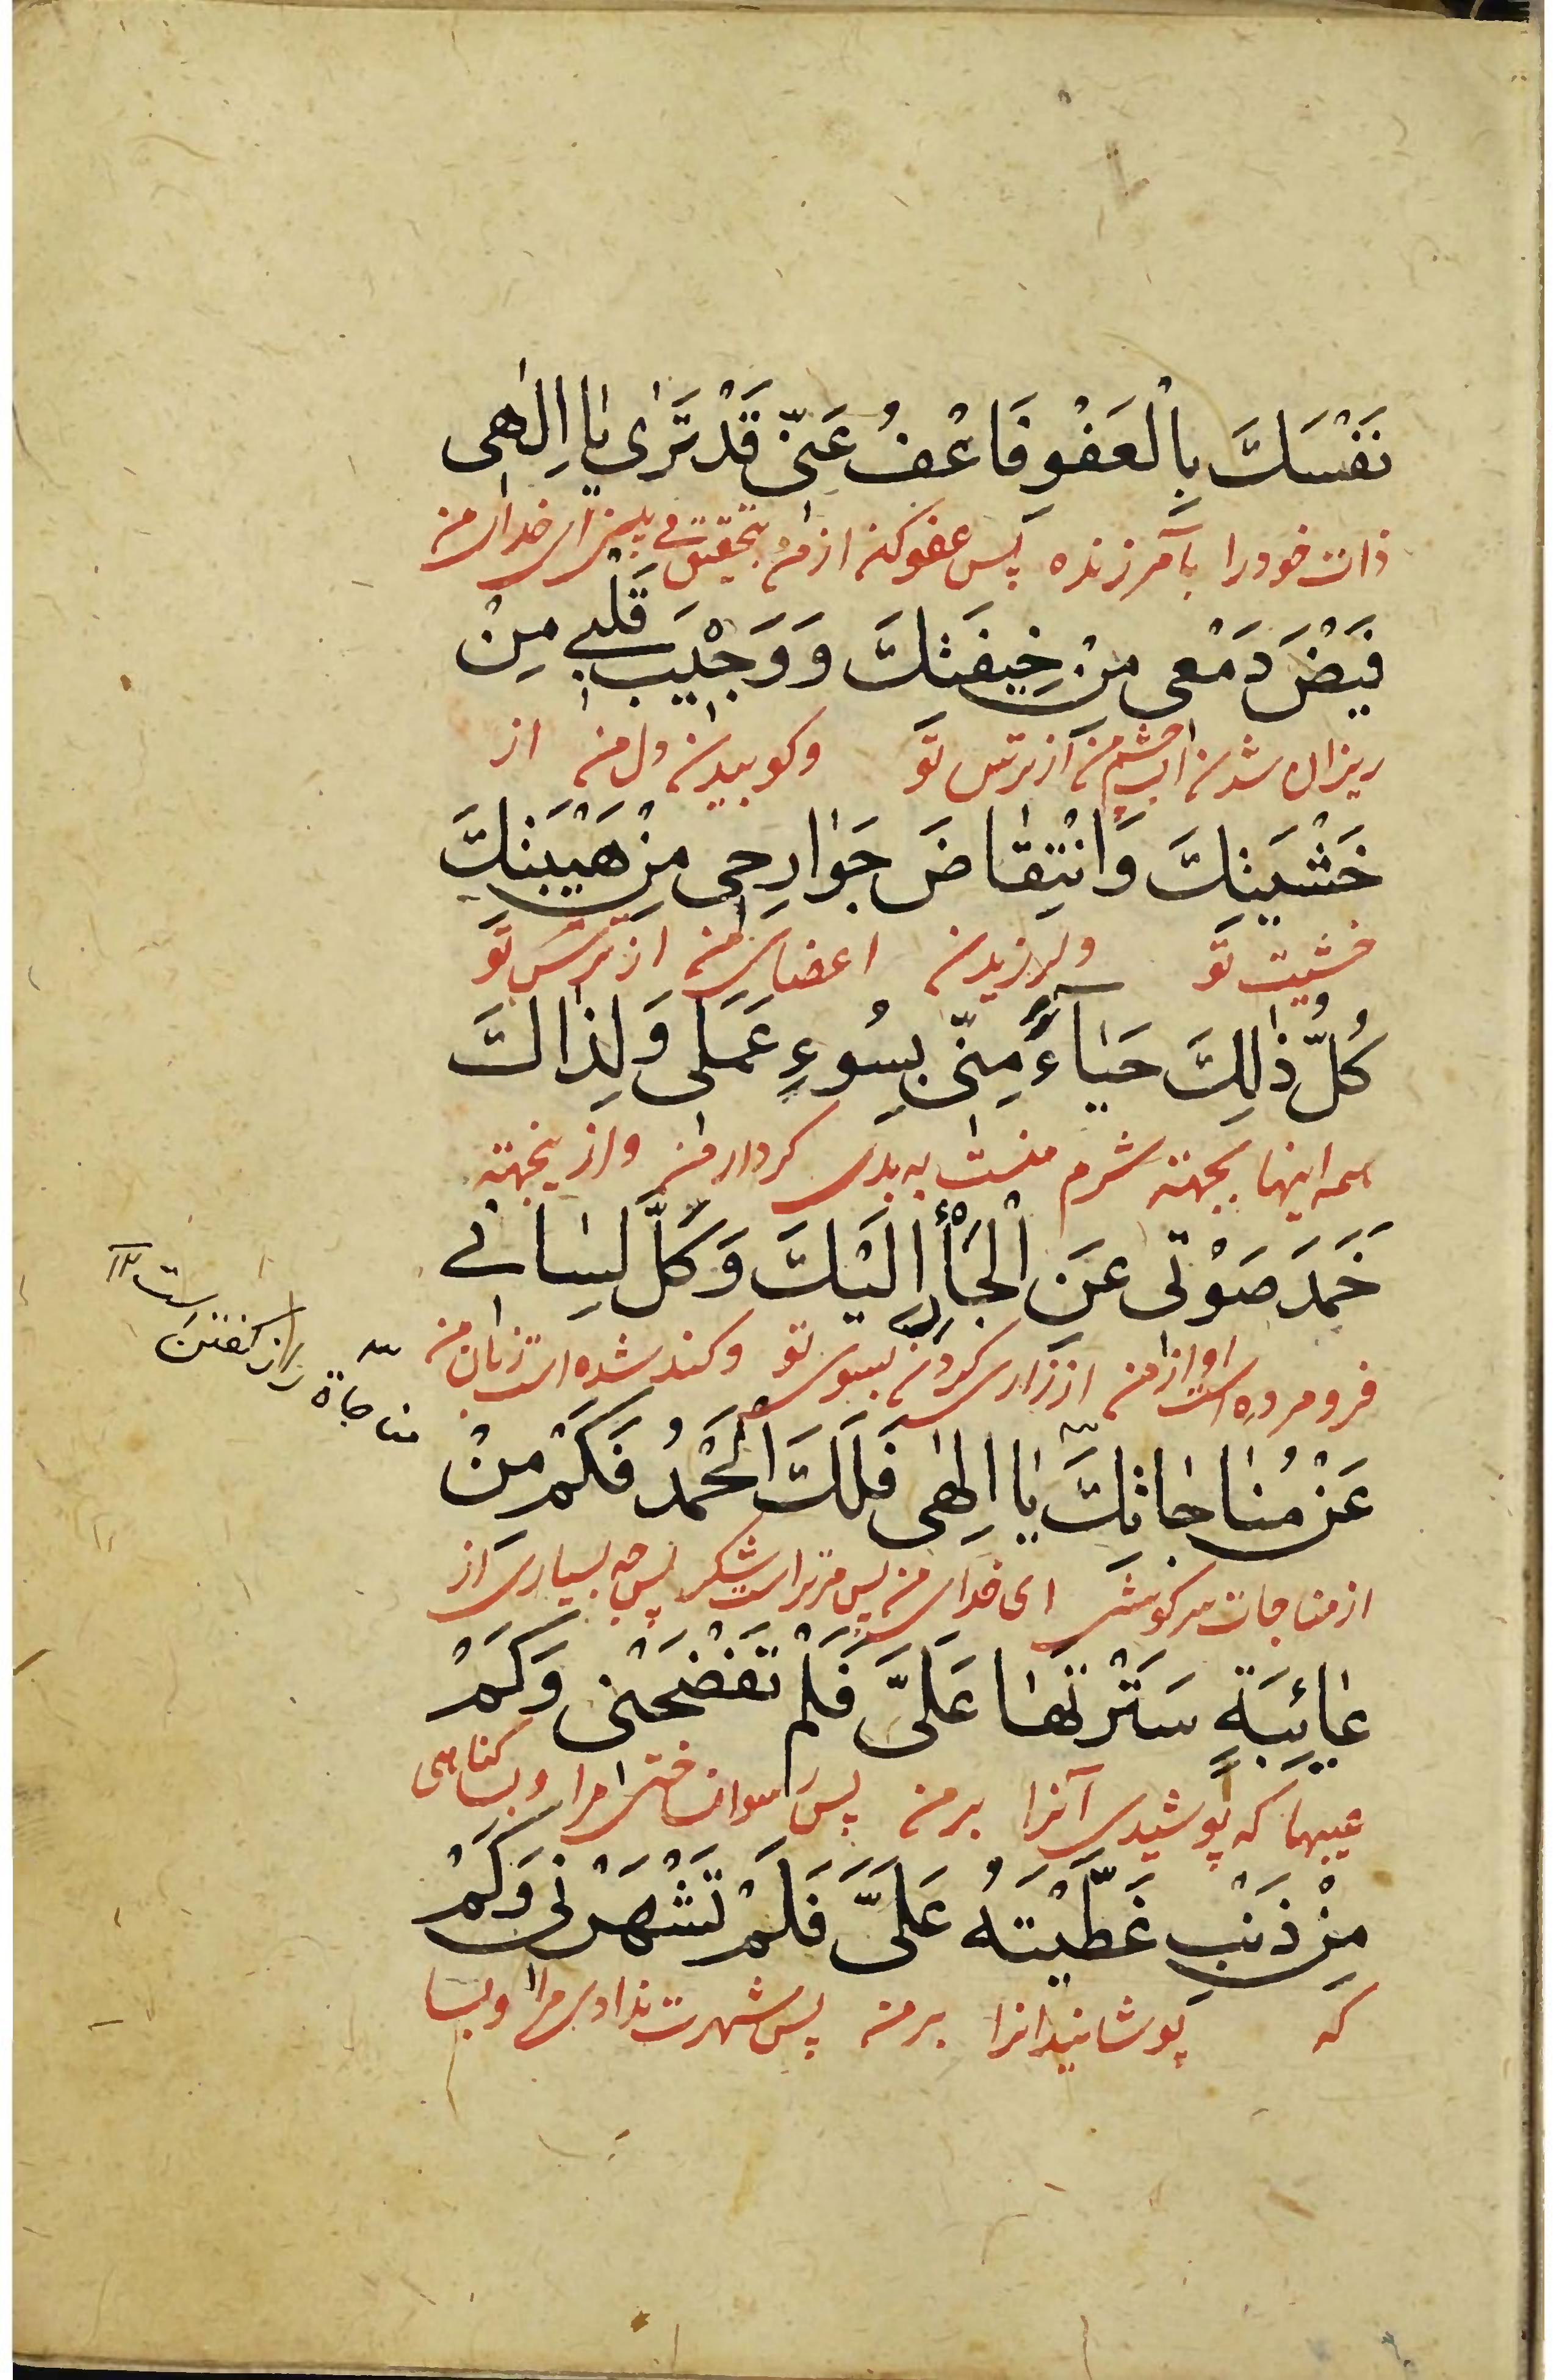 نَفْسَكَ بِالْعَفْوِ فَاعْفُ عَنّى قَدْ تَرٰى يٰا اِلٰهى
ذات خود را بآمرزنده پس عفو کن از من بتحقیق می بینی ای خدای من
فَيْضَ دَمْعى مِنْ خيفَتِكَ وَ وَجْيبَ قَلْبي مِنْ
ریزان شدن اب چشم من از ترس تو و کوبیدن دل من از
خَشْيَتِكَ وَانْتِقٰاضَ جَوٰارِحى مِنْ هَيْبَتِكَ
خشیت تو و لرزیدن اعضای من از ترس تو
كُلُّ ذٰلِكَ حَيٰآءً مِنّى بِسُوءِ عَمَلى وَ لِذٰلكَ
همه اینها بجهته شرم منست به بدی کردار من و از ینجهته
خَمَدَ صَوْتى عَنِ الْجَأْرِ اِلَيْكَ وَ كَلَّ لِسٰانى
فرو مرده است اواز من از زاری کردن بسوی تو و کند شده است زبان من
عَنْ مُنٰاجٰاتِكَ يٰا اِلٰهى فَلَكَ الْحَمْدُ فَكَمْ مِنْ
مناجاة راز گفتن است ۱۲
از مناجات سرکوشی ای خدای من پس مر تراست شکر پس چه بسیاری از
عٰائِبَةٍ سَتَرْتَهٰا عَلَىَّ فَلَمْ تَفْضَحْنى وَ كَمْ
عیبها که پوشیدی آنرا بر من پس رسوا نساختی مرا و بسا کناهی
مِنْ ذَنْبٍ غَطَّيْتَهُ عَلَىَّ فَلَمْ تَشْهَرْنى وَ كَمْ
که پوشانیدانرا بر من پس شهرت ندادی مرا و بسا